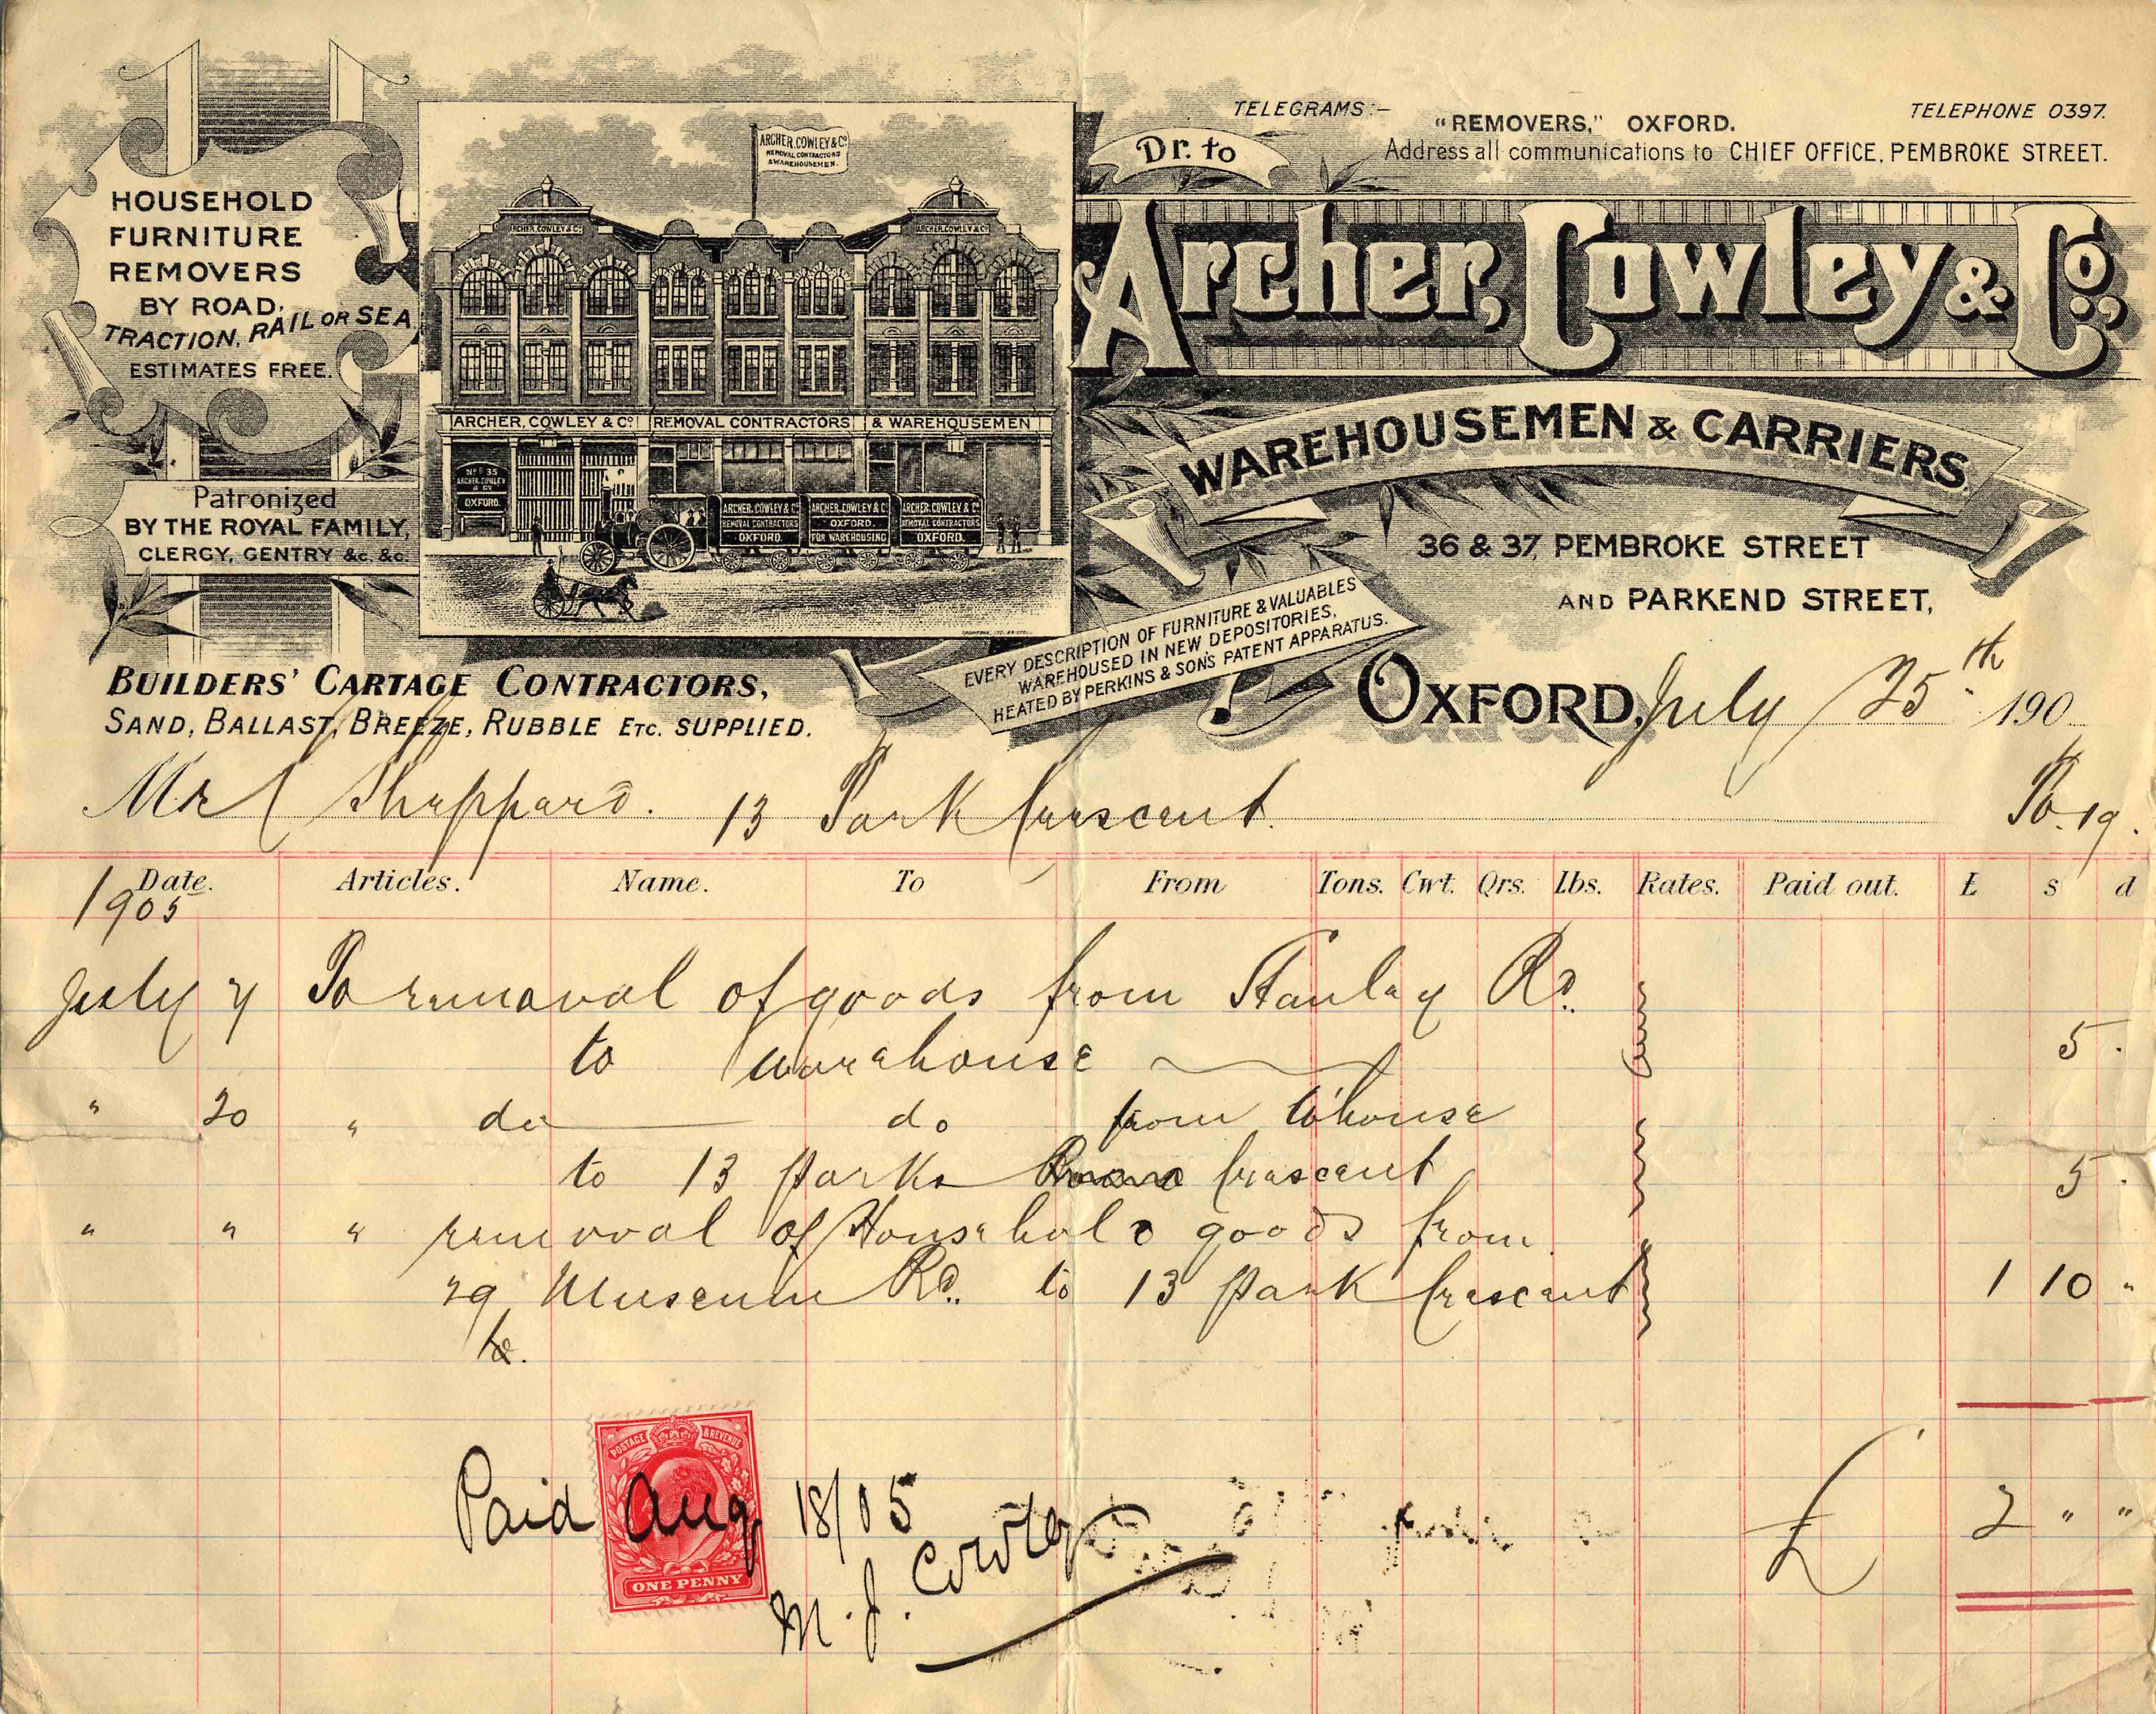 HOUSEHOLD
FURNITURE
REMOVERS
BY ROAD,
TRACTION, RAIL OR SEA
ESTIMATES FREE.
Patronized
BY THE ROYAL FAMILY,
CLERGY, GENTRY &c. &c.
ARCHER, COWLEY & Co
REMOVAL CONTRACTORS
& WAREHOUSEMEN.
ARCHER, COWLEY & Co
ARCHER, COWLEY & Co
ARCHER, COWLEY & Co REMOVAL CONTRACTORS & WAREHOUSEMEN
ARCHER, COWLEY
& Co
OXFORD.
ARCHER, COWLEY & Co
REMOVAL CONTRACTORS
OXFORD.
ARCHER, COWLEY & Co
OXFORD.
FOR WAREHOUSING
ARCHER, COWLEY & Co
REMOVAL CONTRACTORS
OXFORD.
TELEGRAMS:- "REMOVERS," OXFORD. TELEPHONE 0397.
Address all communications to CHIEF OFFICE, PEMBROKE STREET.
Dr. to
Archer, Cowley & Co.,
WAREHOUSEMEN & CARRIERS.
36 & 37, PEMBROKE STREET
AND PARKEND STREET,
EVERY DESCRIPTION OF FURNITURE & VALUABLES
WAREHOUSED IN NEW DEPOSITORIES,
HEATED BY PERKINS & SON'S PATENT APPARATUS.
BUILDERS' CARTAGE CONTRACTORS,
SAND, BALLAST, BREEZE, RUBBLE ETC. SUPPLIED.
OXFORD, July 25th 190
Mr Sheppard. 13 Park Crescent.
Date. Articles. Name. To From Tons. Cwt. Qrs. Lbs. Rates. Paid out. £ s d
1905
July To removal of goods from Stanley Rd.
to warehouse 5 .
" 20 " do do from W'house
to 13 Parks Crescent 5 .
" " " removal of Household goods from
29 Museum Rd. to 13 Park Crescent 1 10 "
POSTAGE & REVENUE
ONE PENNY
Paid Aug 18/05
M. J. Cowley
£ 2 " "